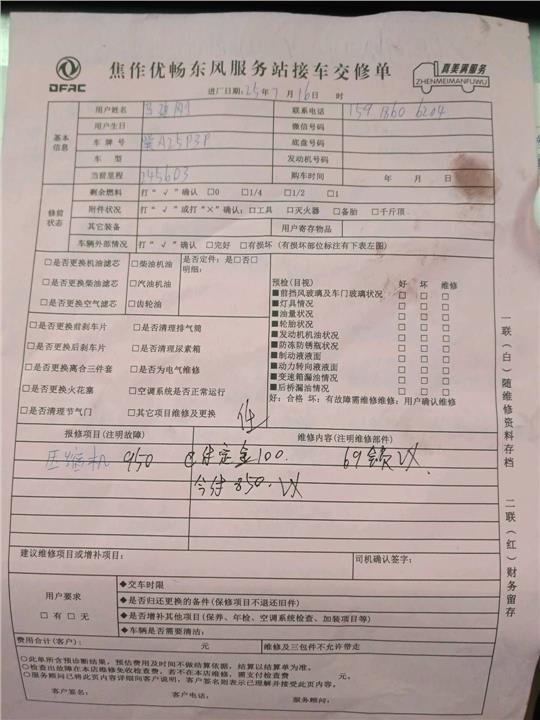 DFAC
焦作优畅东风服务站接车交修单
真美满服务
ZHENMEIMANFUWU
进厂日期: 25年7月16日 时
基本信息
用户姓名 联系电话 159 1860 6204
用户生日 微信号码
车牌号 A25P3P 底盘号码
车型 发动机号码
当前里程 245603 购车时间 年 月 日
修前状态
剩余燃料 打“√”确认 □0 □1/4 □1/2 □1
附件状况 打“√”或打“×”确认: □工具 □灭火器 □备胎 □千斤顶
其它装备 用户寄存物品
车辆外部情况 打“√”确认 □完好 □有损坏 (有损坏部位标注有下表左图)
□是否更换机油滤芯 □柴油机油 是否定件: 是□否□
明细:
□是否更换柴油滤芯 □汽油机油
□是否更换空气滤芯 □齿轮油
预检(目视) 好 坏 维修
■前挡风玻璃及车门玻璃状况 □ □ □
■灯具情况 □ □ □
■油量状况 □ □ □
■轮胎状况 □ □ □
■发动机机油状况 □ □ □
■防冻防锈瓶状况 □ □ □
■制动液液面 □ □ □
■动力转向液液面 □ □ □
■变速箱漏油情况 □ □ □
■后桥漏油情况 □ □ □
好: 合格 坏: 有故障需维修维修: 用户确认维修
□是否更换前刹车片 □是否清理排气筒
□是否更换后刹车片 □是否清理尿素箱
□是否更换离合三件套 □是否为电气维修
□是否更换火花塞 □空调系统是否正常运行
□是否清理节气门 □其它项目维修及更换
报修项目(注明故障) 维修内容(注明维修部件)
压缩机 950 定金100.
今付850.
建议维修项目或增补项目: 司机确认签字:
用户要求
□有 □无
◆交车时限
◆是否归还更换的备件(保修项目不退还旧件)
◆是否增补其他项目(保养、年检、空调系统检查、加装项目等)
◆车辆是否需要清洁:
费用合计(客户): 元 维修及三包件不允许带走
○此单所含预诊断结果,预估费用及时间不做结算依据,结算以结算单为准。
○检查出故障在本店维修免收检查费,若不在本店维修,需支付检查费 元。
○服务顾问已将此页内容详细向客户说明,客户签名则表示已理解并接受此页内容。
客户签名: 客户电话: 服务顾问:
一联(白)随维修资料存档
二联(红)财务留存